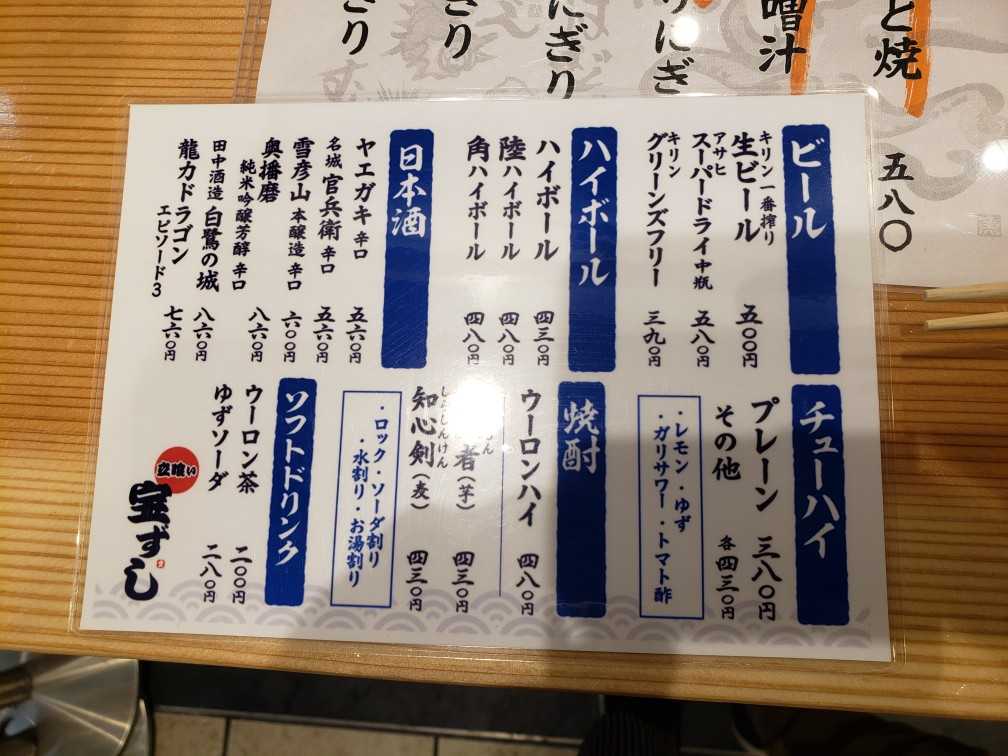 と焼
五八〇
噌汁
りにぎ
にぎり
ぎり
ぎり
ビール
キリン一番搾り
生ビール 五〇〇円
アサヒ
スーパードライ 中瓶 五八〇円
キリン
グリーンズフリー 三九〇円
ハイボール
ハイボール 四三〇円
陸ハイボール 四八〇円
角ハイボール 四八〇円
日本酒
ヤエガキ 辛口 五六〇円
名城 官兵衛 辛口 五六〇円
雪彦山 本醸造 辛口 六〇〇円
奥播磨
純米吟醸芳醇 辛口 八六〇円
田中酒造 白鷺の城 八六〇円
龍力ドラゴン
エピソード3 七六〇円
チューハイ
プレーン 三八〇円
その他 各四三〇円
・レモン・ゆず
・ガリサワー・トマト酢
焼酎
ウーロンハイ 四八〇円
者(芋) 四三〇円
ちしんけん
知心剣(麦) 四三〇円
・ロック・ソーダ割り
・水割り・お湯割り
ソフトドリンク
ウーロン茶 二〇〇円
ゆずソーダ 二八〇円
立喰い
宝ずし